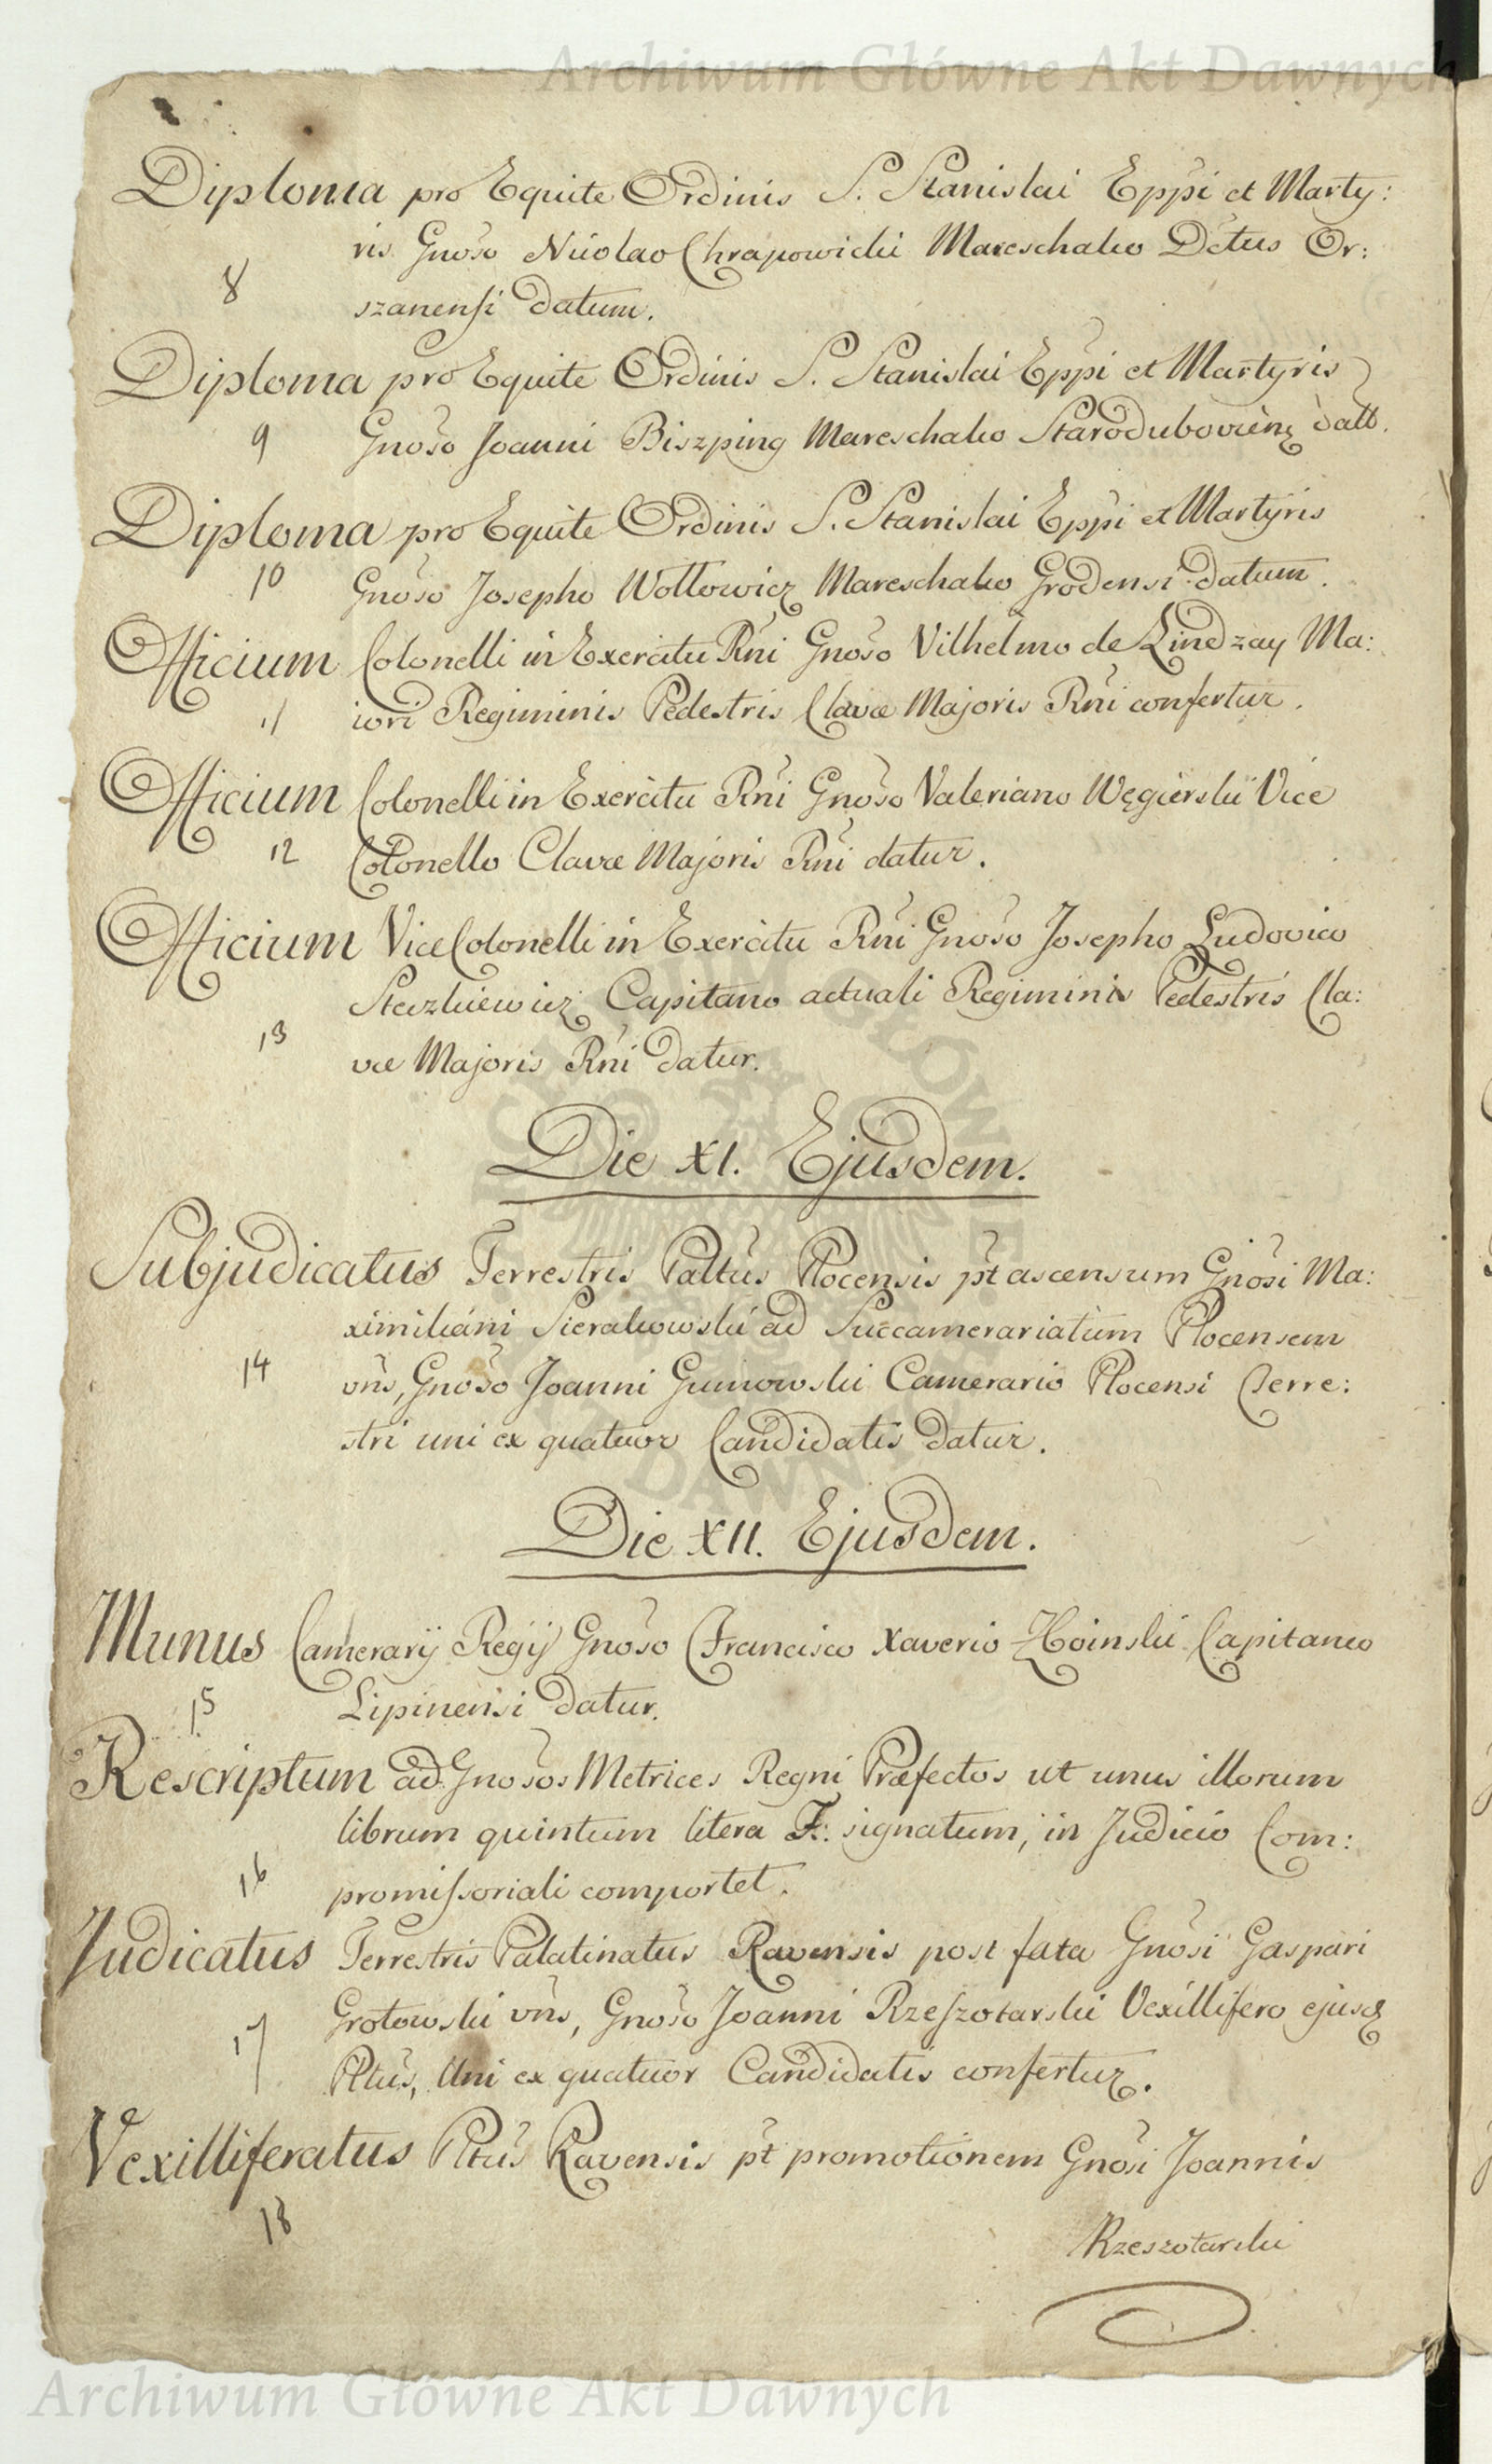 Archiwum Główne Akt Dawnych
Diploma pro Equite Ordinis S. Stanislai Eppi et Marty:
ris Gnoso Nicolao Chrapowicki Mareschalco Dctus Or:
8
szanensi datum.
Diploma pro Equite Ordinis S. Stanislai Eppi et Martyris
9 Gnoso Joanni Biszping Mareschalco Starodubovien datt.
Diploma pro Equite Ordinis S. Stanislai Eppi et Martyris
10 Gnoso Josepho Wołłowicz Mareschalco Grodensi datum.
Officium Colonelli in Exercitu Rni Gnoso Vilhelmo de Lindzay Ma:
11 iori Regiminis Pedestris Clavæ Majoris Rni confertur.
Officium Colonelli in Exercitu Rni Gnoso Valeriano Węgierski Vice
12 Colonello Clavæ Majoris Rni datur.
Officium Vice Colonelli in Exercitu Rni Gnoso Josepho Ludovico
Steczkiewicz Capitano actuali Regiminis Pedestris Cla:
13
væ Majoris Rni datur.
Die XI. Ejusdem.
Subjudicatus Terrestris Paltus Plocensis pt ascensum Gnosi Ma:
ximiliani Sierakowski ad Succamerariatum Plocensem
14 vns, Gnoso Joanni Gumowski Camerario Plocensi Terre:
stri uni ex quatuor Candidatis datur.
Die XII. Ejusdem.
Munus Camerarij Regij Gnoso Francisco Xaverio Zboinski Capitaneo
15 Lipinensi datur.
Rescriptum ad Gnosos Metrices Regni Præfectos ut unus illorum
librum quintum litera F. signatum, in Judicio Com:
16 promissoriali comportet.
Judicatus Terrestris Palatinatus Ravensis post fata Gnosi Gaspari
Grotowski vns, Gnoso Joanni Rzeszotarski Vexillifero ejusd
17 Pltus, Uni ex quatuor Candidatis confertur.
Vexilliferatus Pltus Ravensis pt promotionem Gnosi Joannis
18
Rzeszotarski
Archiwum Główne Akt Dawnych